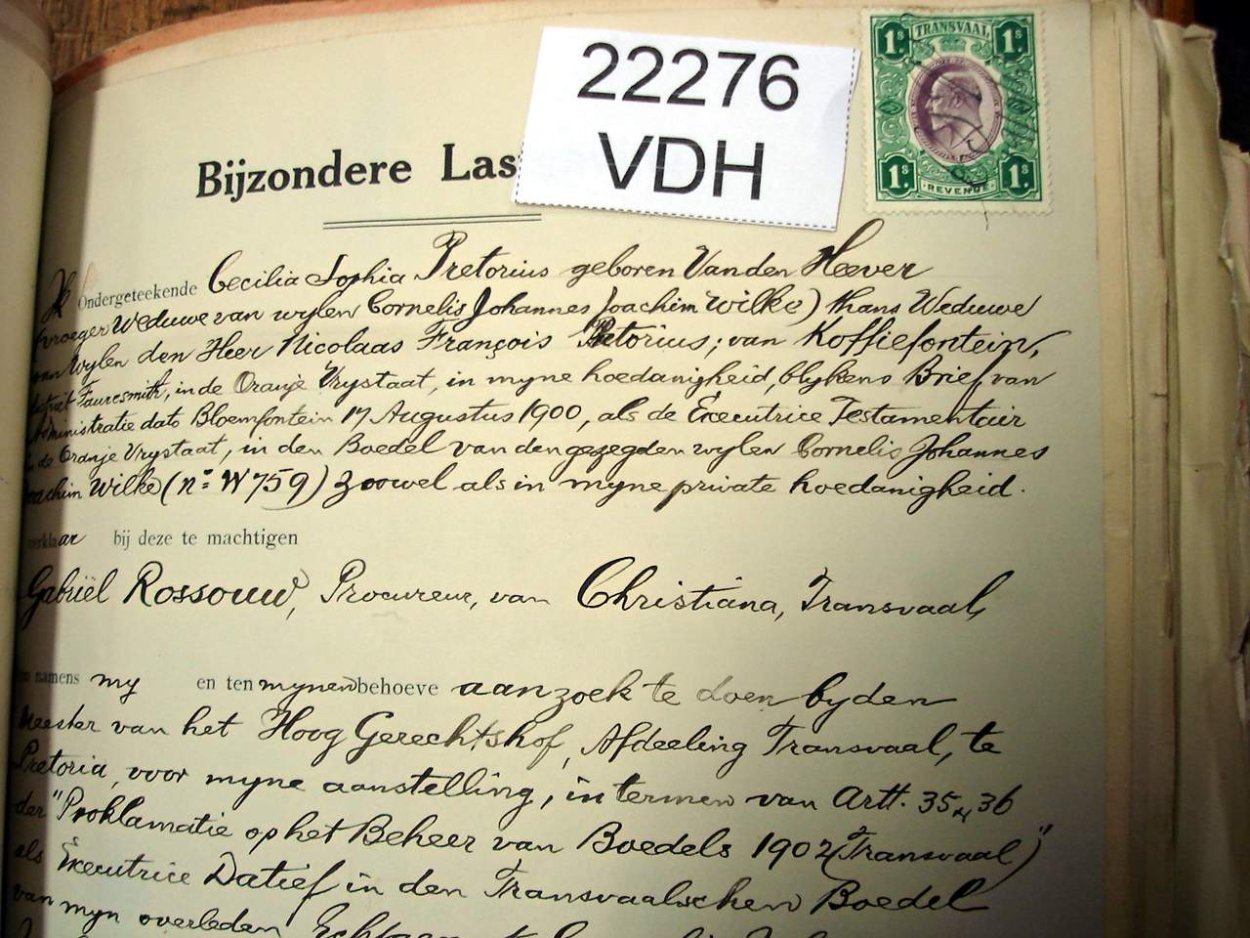 22276
VDH
1s TRANSVAAL 1s
1s REVENUE 1s
Bijzondere Las
Ik Ondergeteekende Cecilia Sophia Pretorius geboren Van den Heever
(vroeger Weduwe van wylen Cornelis Johannes Joachim Wilke) thans Weduwe
van Wylen den Heer Nicolaas François Pretorius; van Koffiefontein,
district Fauresmith, in de Oranje Vrystaat, in myne hoedanigheid, blykens Brief van
Administratie dato Bloemfontein 17 Augustus 1900, als de Executrice Testamentair
in de Oranje Vrystaat, in den Boedel van den gezegden wylen Cornelis Johannes
Joachim Wilke (no: W 759) zoowel als in myne private hoedanigheid.
verklaar bij deze te machtigen
Gabriël Rossouw, Procureur, van Christiana, Transvaal,
namens my en ten mynen behoeve aanzoek te doen by den
Meester van het Hoog Gerechtshof, Afdeeling Transvaal, te
Pretoria, voor myne aanstelling, in termen van Artt. 35 & 36
der "Proklamatie op het Beheer van Boedels 1902 (Transvaal)"
als Executrice Datief in den Transvaalschen Boedel
van myn overleden